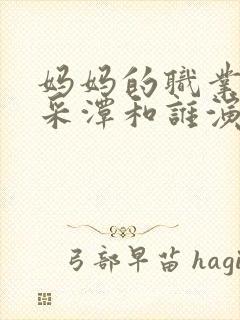 妈妈的职業
采潭和誰演
弓部早苗 hagi